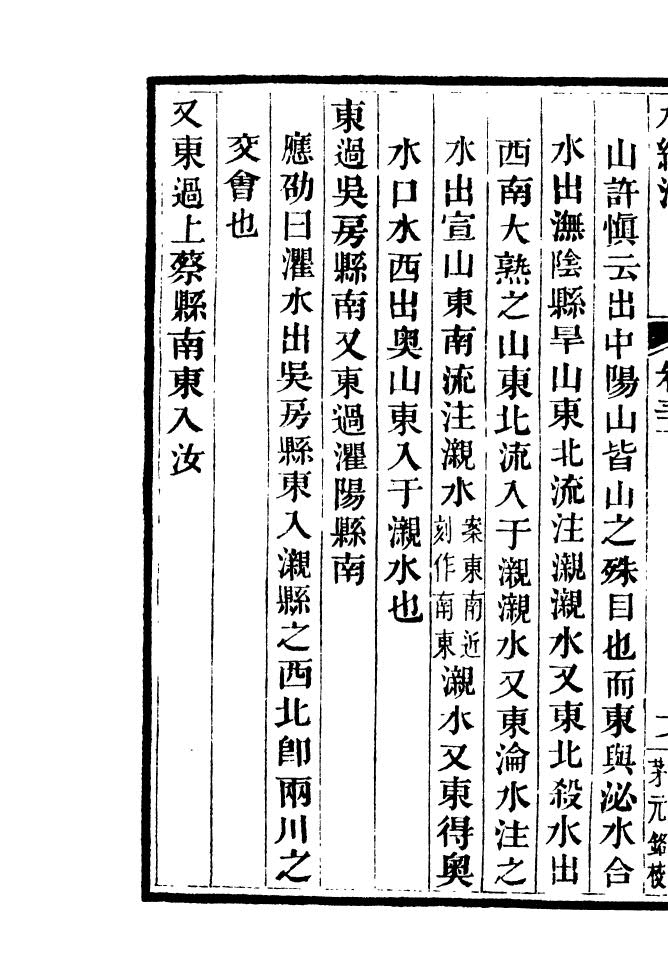 水經注 卷三 茅元銘校
山許愼云出中陽山皆山之殊目也而東與泌水合
水出潕陰縣旱山東北流注瀙瀙水又東北殺水出
西南大熟之山東北流入于瀙瀙水又東淪水注之
水出宣山東南流注瀙水案東南近刻作南東瀙水又東得奥
水口水西出奥山東入于瀙水也
東過吳房縣南又東過灈陽縣南
應劭曰灈水出吳房縣東入瀙縣之西北卽兩川之
交會也
又東過上蔡縣南東入汝